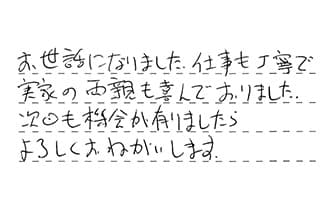 お世話になりました.仕事も丁寧で
実家の両親も喜んでおりました.
次回も機会が有りましたら
よろしくおねがいします.